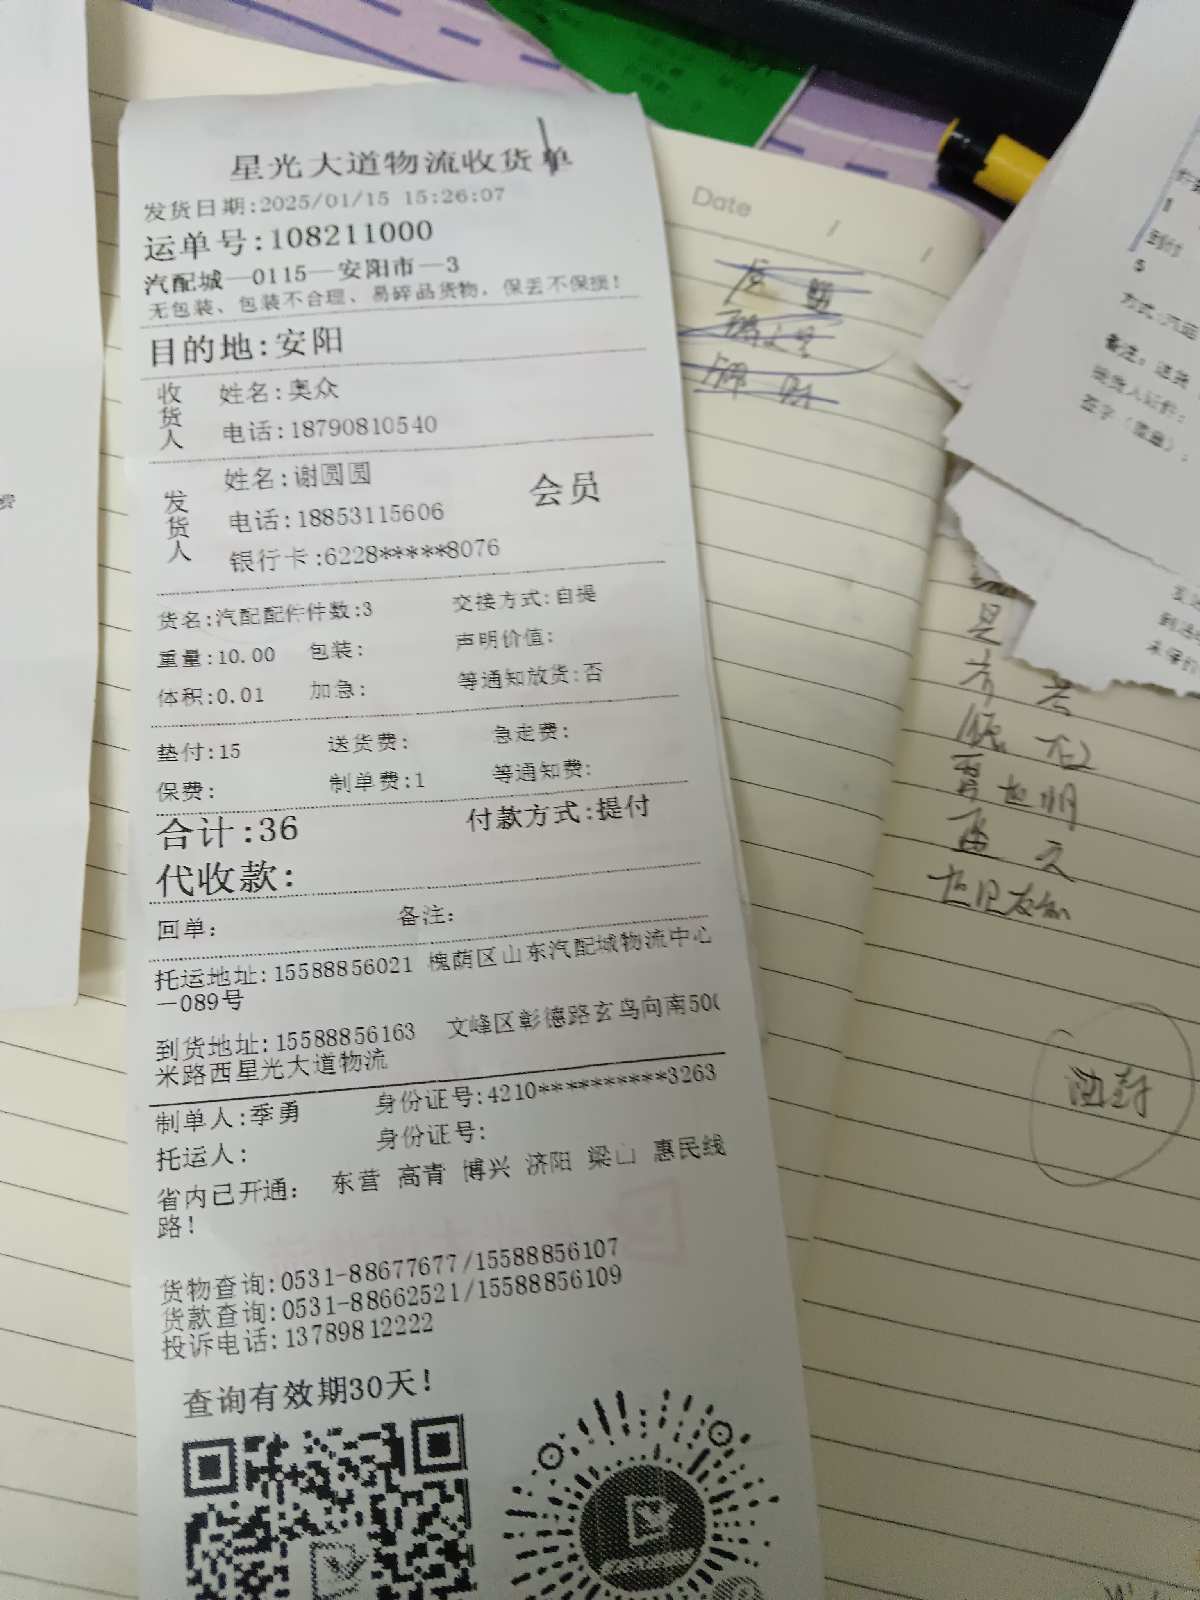 星光大道物流收货单
发货日期:2025/01/15 15:26:07
运单号:108211000
汽配城—0115—安阳市—3
无包装、包装不合理、易碎品货物，保丢不保损!
目的地:安阳
收货人
姓名:奥众
电话:18790810540
发货人
姓名:谢圆圆
会员
电话:18853115606
银行卡:6228*****8076
货名:汽配配件件数:3 交接方式:自提
重量:10.00 包装: 声明价值:
体积:0.01 加急: 等通知放货:否
垫付:15 送货费: 急走费:
保费: 制单费:1 等通知费:
合计:36 付款方式:提付
代收款:
回单: 备注:
托运地址:15588856021 槐荫区山东汽配城物流中心
—089号
到货地址:15588856163 文峰区彰德路玄鸟向南500
米路西星光大道物流
制单人:季勇 身份证号:4210**********3263
托运人: 身份证号:
省内已开通: 东营 高青 博兴 济阳 梁山 惠民线
路!
货物查询:0531-88677677/15588856107
货款查询:0531-88662521/15588856109
投诉电话:13789812222
查询有效期30天!
Date / /
到付
方式:汽运
备注: 送货
签字(盖章):
费